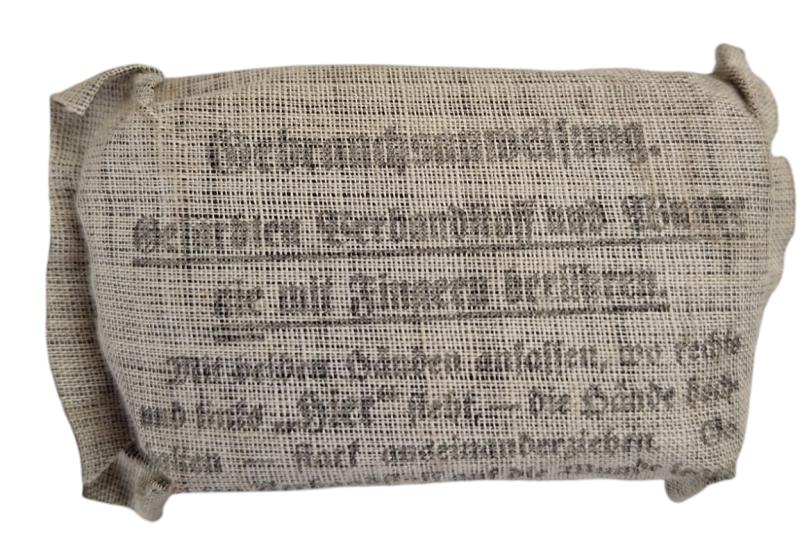 Gebrauchsanweisung.
Gefärbten Verbandstoff und Wunde
nie mit Fingern berühren.
Mit beiden Händen anfassen, wo rechts
und links „Hier“ steht, — die Hände
— stark auseinanderziehen.
auf die Wunde